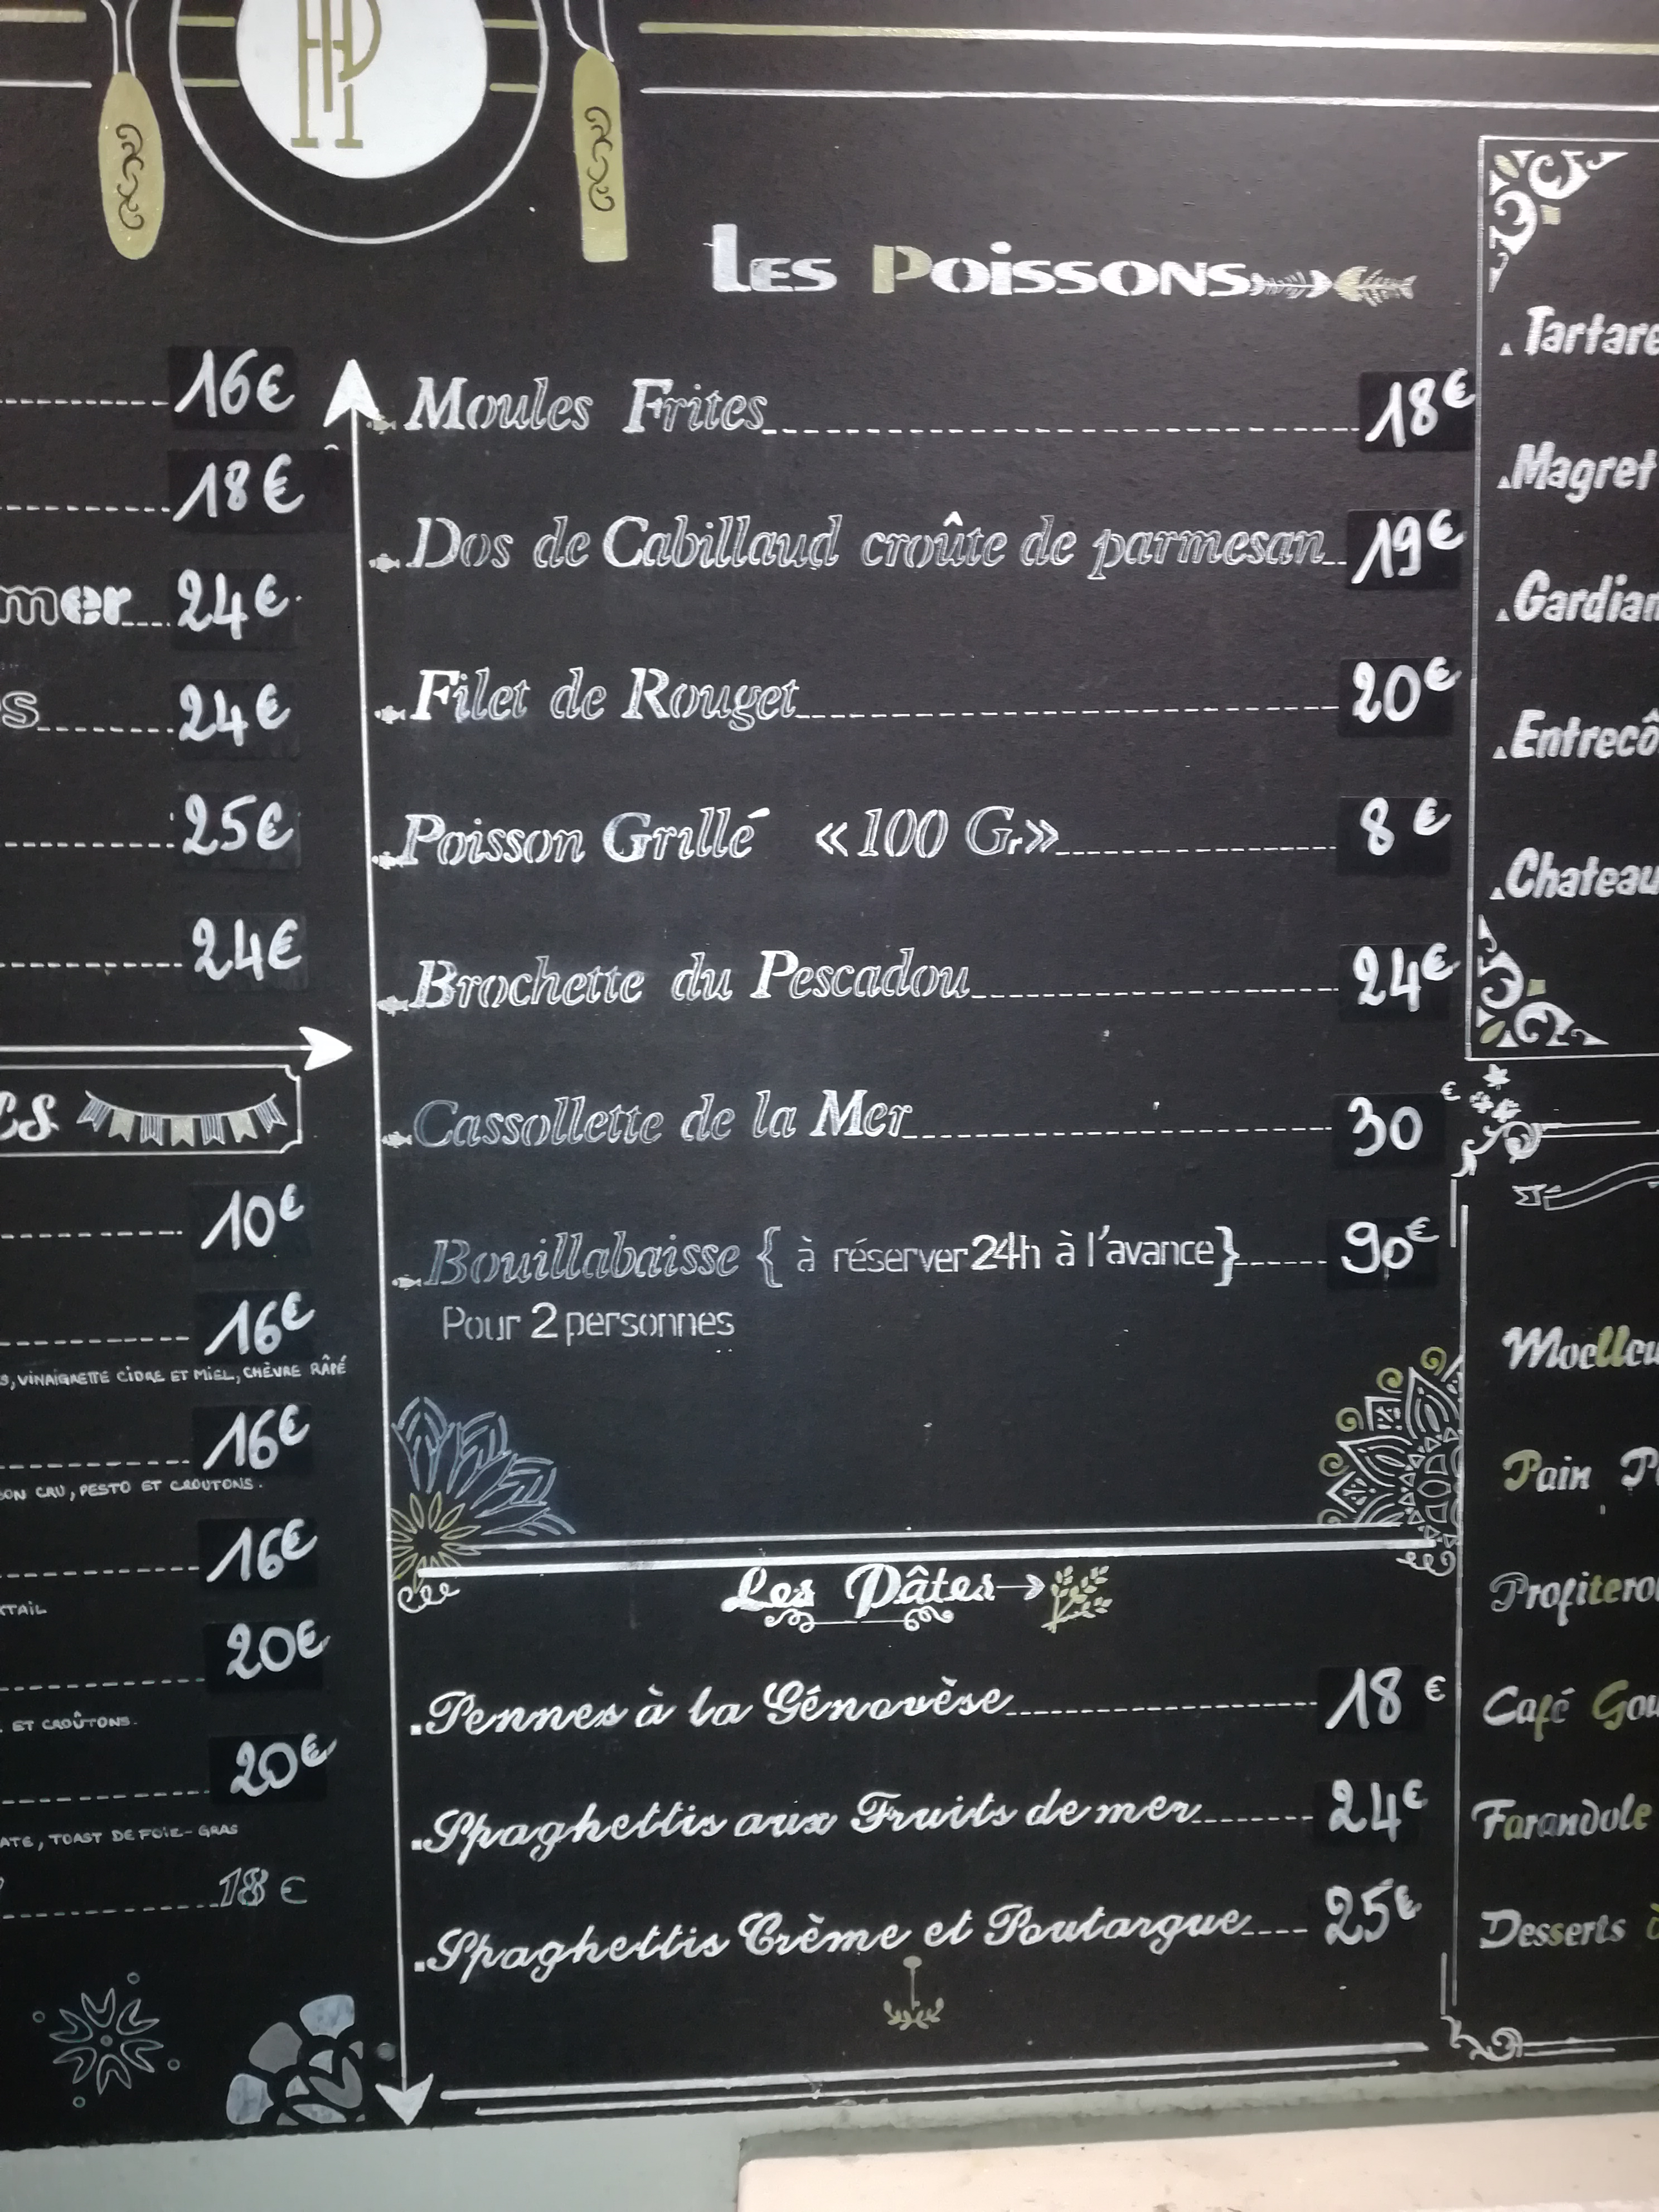 HP
16€
18€
mer 24€
s 24€
25€
24€
ES
10€
16€
S, VINAIGRETTE CIDRE ET MIEL, CHÈVRE RÂPÉ
16€
ON CRU, PESTO ET CROUTONS.
16€
KTAIL
20€
ET CROÛTONS.
20€
ATE, TOAST DE FOIE-GRAS
18€
Les Poissons
Moules Frites 18€
Dos de Cabillaud croûte de parmesan 19€
Filet de Rouget 20€
Poisson Grillé «100 Gr» 8€
Brochette du Pescadou 24€
Cassollette de la Mer 30 €
Bouillabaisse { à réserver 24h à l'avance} 90€
Pour 2 personnes
Les Pâtes
Pennes à la Génovèse 18€
Spaghettis aux Fruits de mer 24€
Spaghettis Crème et Poutargue 25€
Tartare
Magret
Gardian
Entrecô
Chateau
Moelleu
Pain P
Profitero
Café Gou
Farandole
Desserts à